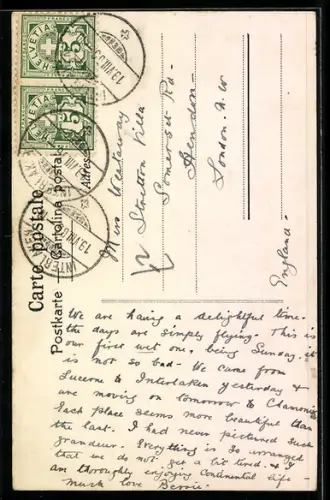 HELVETIA
HELVETIA
INTERLAKEN
Carte postale
Postkarte — Cartolina postale
Miss Westaway
Stratton Villa
Somerset Rd
Hendon
London. N.W
England.
We are having a delightful time.
the days are simply flying. This is
our first wet one. being Sunday it
is not so bad. We came from
Lucerne to Interlaken yesterday &
are moving on tomorrow to Chamonix
Each place seems more beautiful than
the last. I had never pictured such
grandeur. Everything is so arranged
that we do not get a bit tired. & I
am throughly enjoying continental life.
much love Bessie.